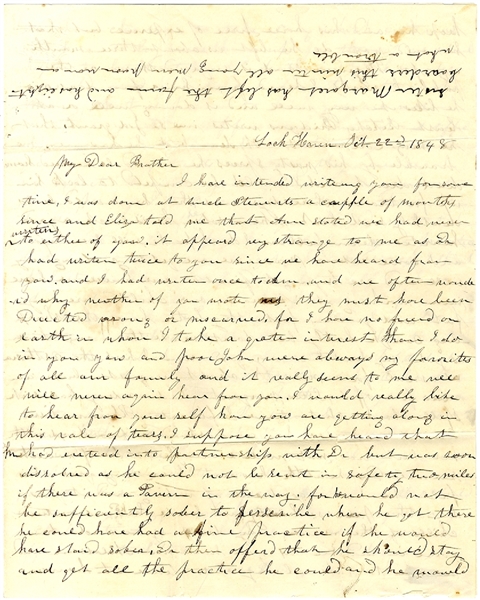 Sister Margaret has left the farm and has eight
boarders this winter all young men from
what a trouble
Lock Haven Oct. 22nd 1848
My Dear Brother
I have intended writing you for some
time, I was down at uncle Stewarts a cupple of months
since and Eliza told me that Ann stated we had never
writen
to either of you. it appeard very strange to me as I
had writen twice to you since we have heard from
you. and I had writen once to and we often wonde
ed why neither of you wrote us they must have been
Directed wrong or miscarried. for I have no friend on
earth in whom I take a grater interest than I do
in you you and poor John were always my favorites
of all our family and it really seems to me we
will never again hear from you. I would really like
to hear from your self how you are getting along in
this vale of tears. I suppose you have heard that
had entered into partnership with Dr but was soon
disolved as he could not be sent in safety two miles
if there was a Tavern in the way. for would not
be sufficiently sober to perscribe when he got there
he could have had a fine practice if he would
have staid sober, Dr then offerd that he should stay
and get all the practice he could and he would